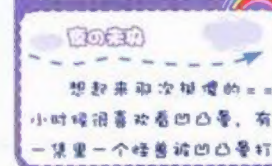 夜の未
想起来那次挺傻的==
小时候很喜欢看凹凸曼,有
一集里一个怪兽被凹凸曼打